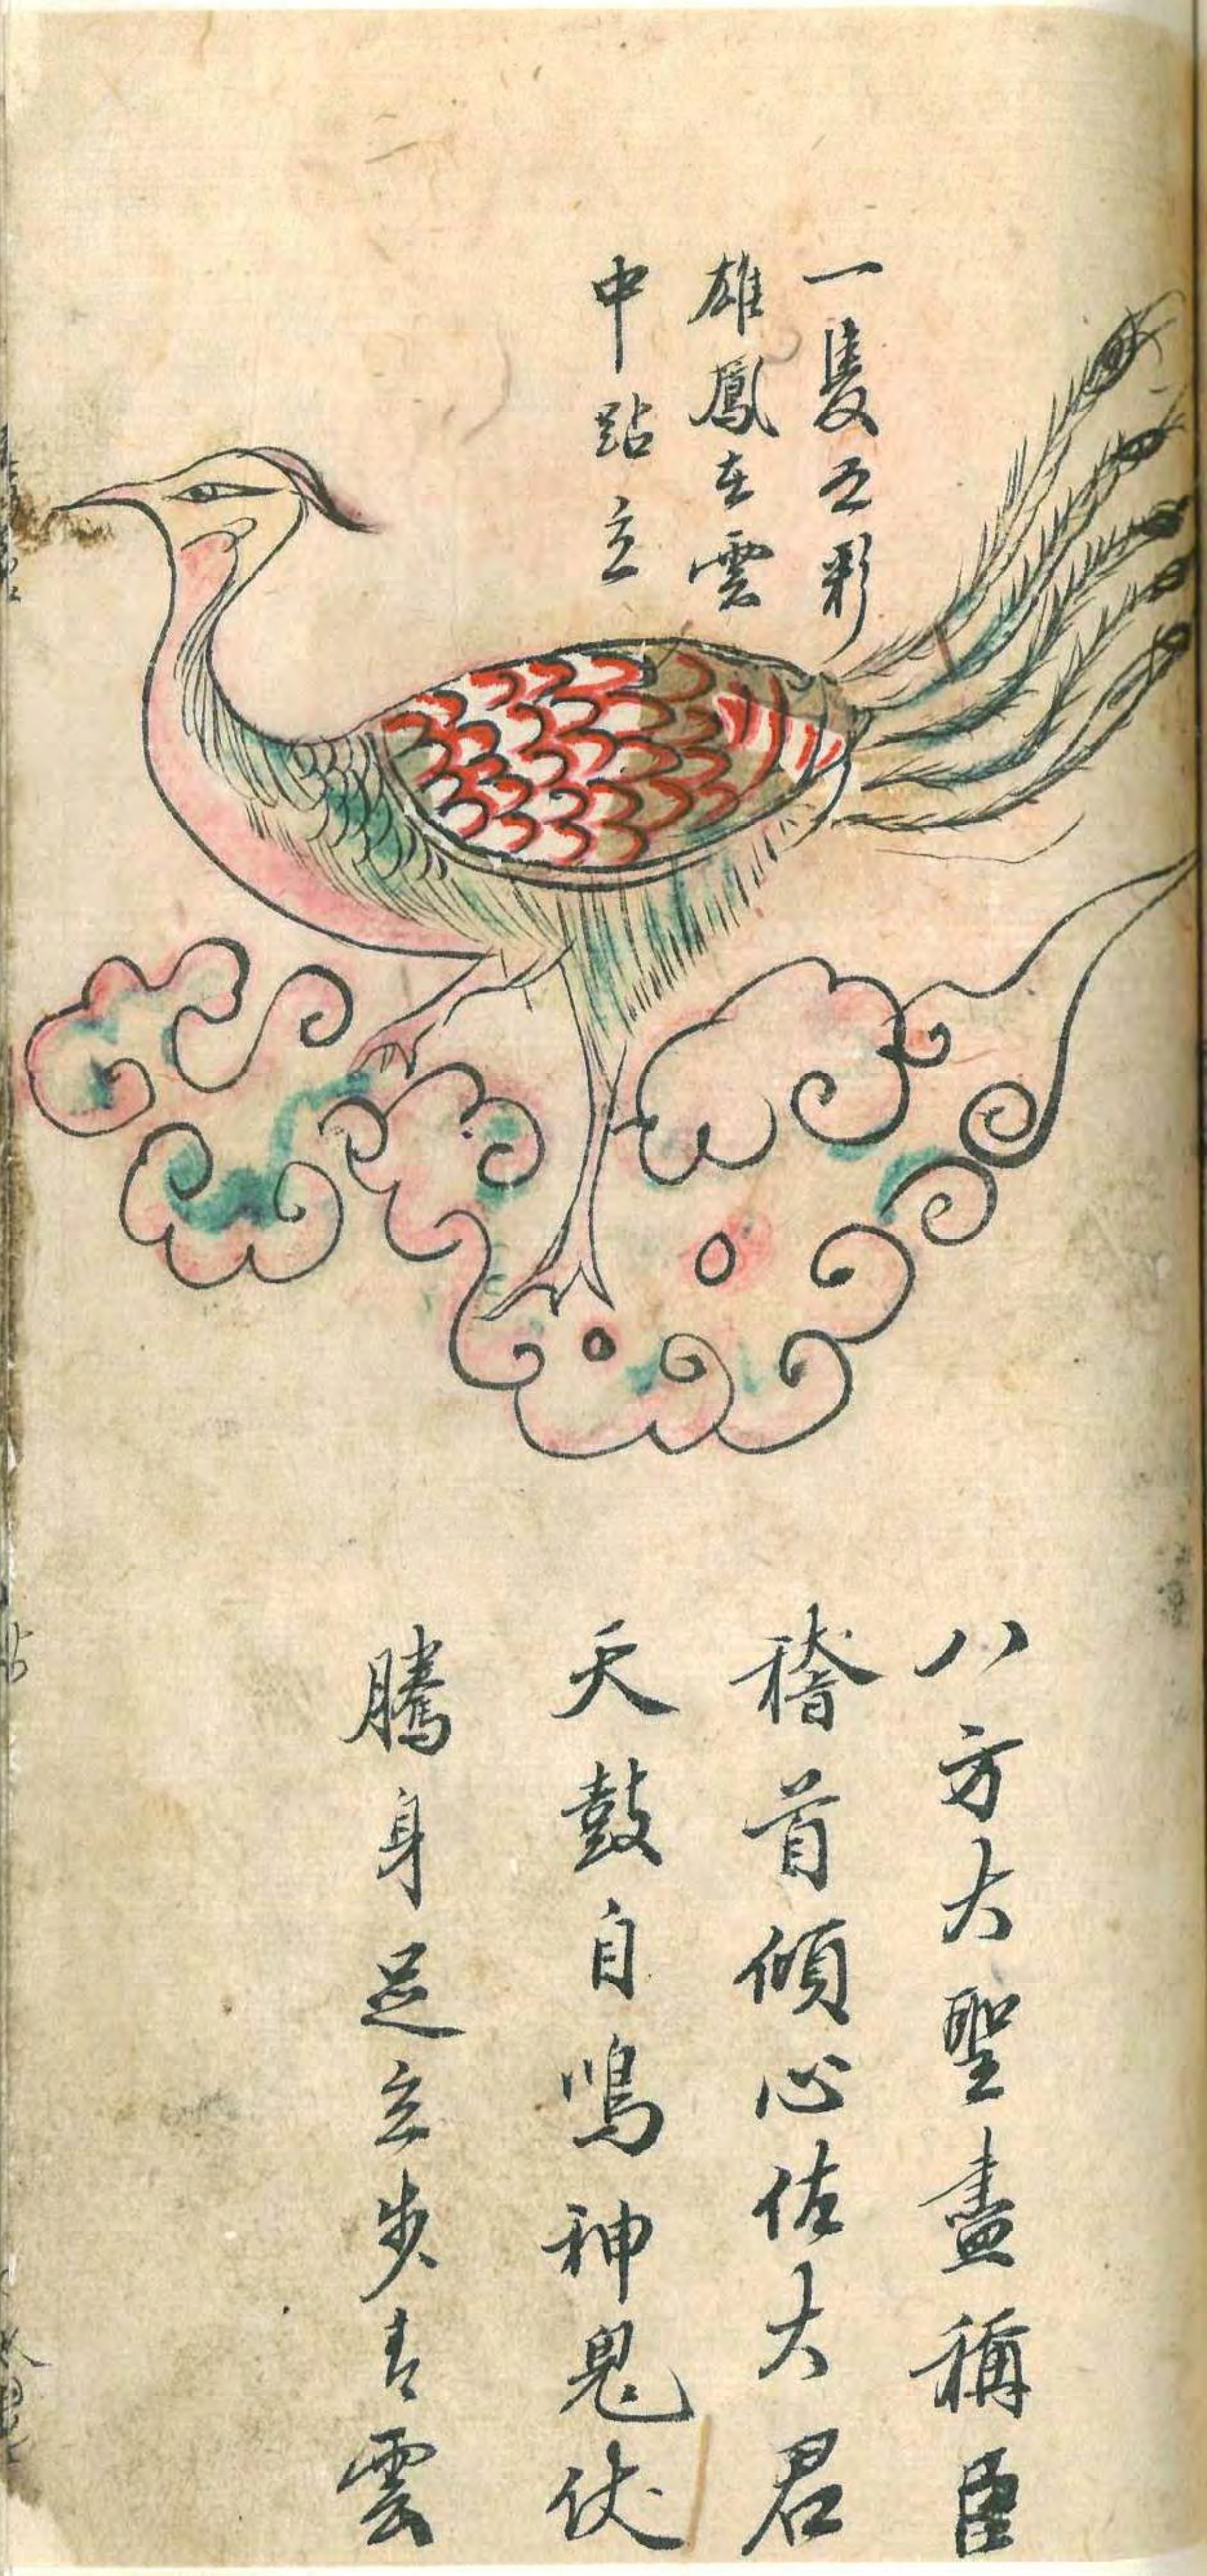 一隻五彩
雄鳳在雲
中跕立
八方大聖盡稱臣
稽首傾心佐大君
天鼓自鳴神鬼伏
騰身足立步青雲